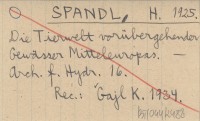 SPANDL, H. 1925.
Die Tierwelt vorübergehender
Gewässer Mitteleuropas. —
Arch. f. Hydr. 16.
Rec.: Gajl K. 1934.